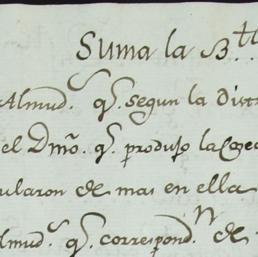 Suma la B.tta
Almud.s q.e segun la Distr
el Dmo. q.e produjo la Cosec
ularon de mas en ella
lmud.s q.e correspond.n de